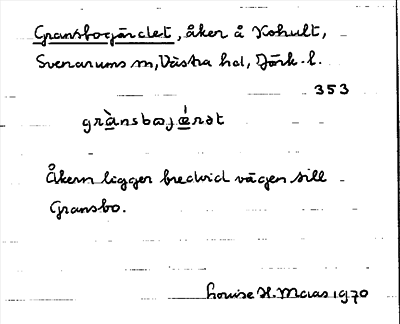 Gransbogärdet, åker å Kohult,
Svenarums sn, Västra hd, Jönk. l.
353
grànsboj(ǽ)rdet
Åkern ligger bredvid vägen till
Gransbo.
Louise H. Maas 1970